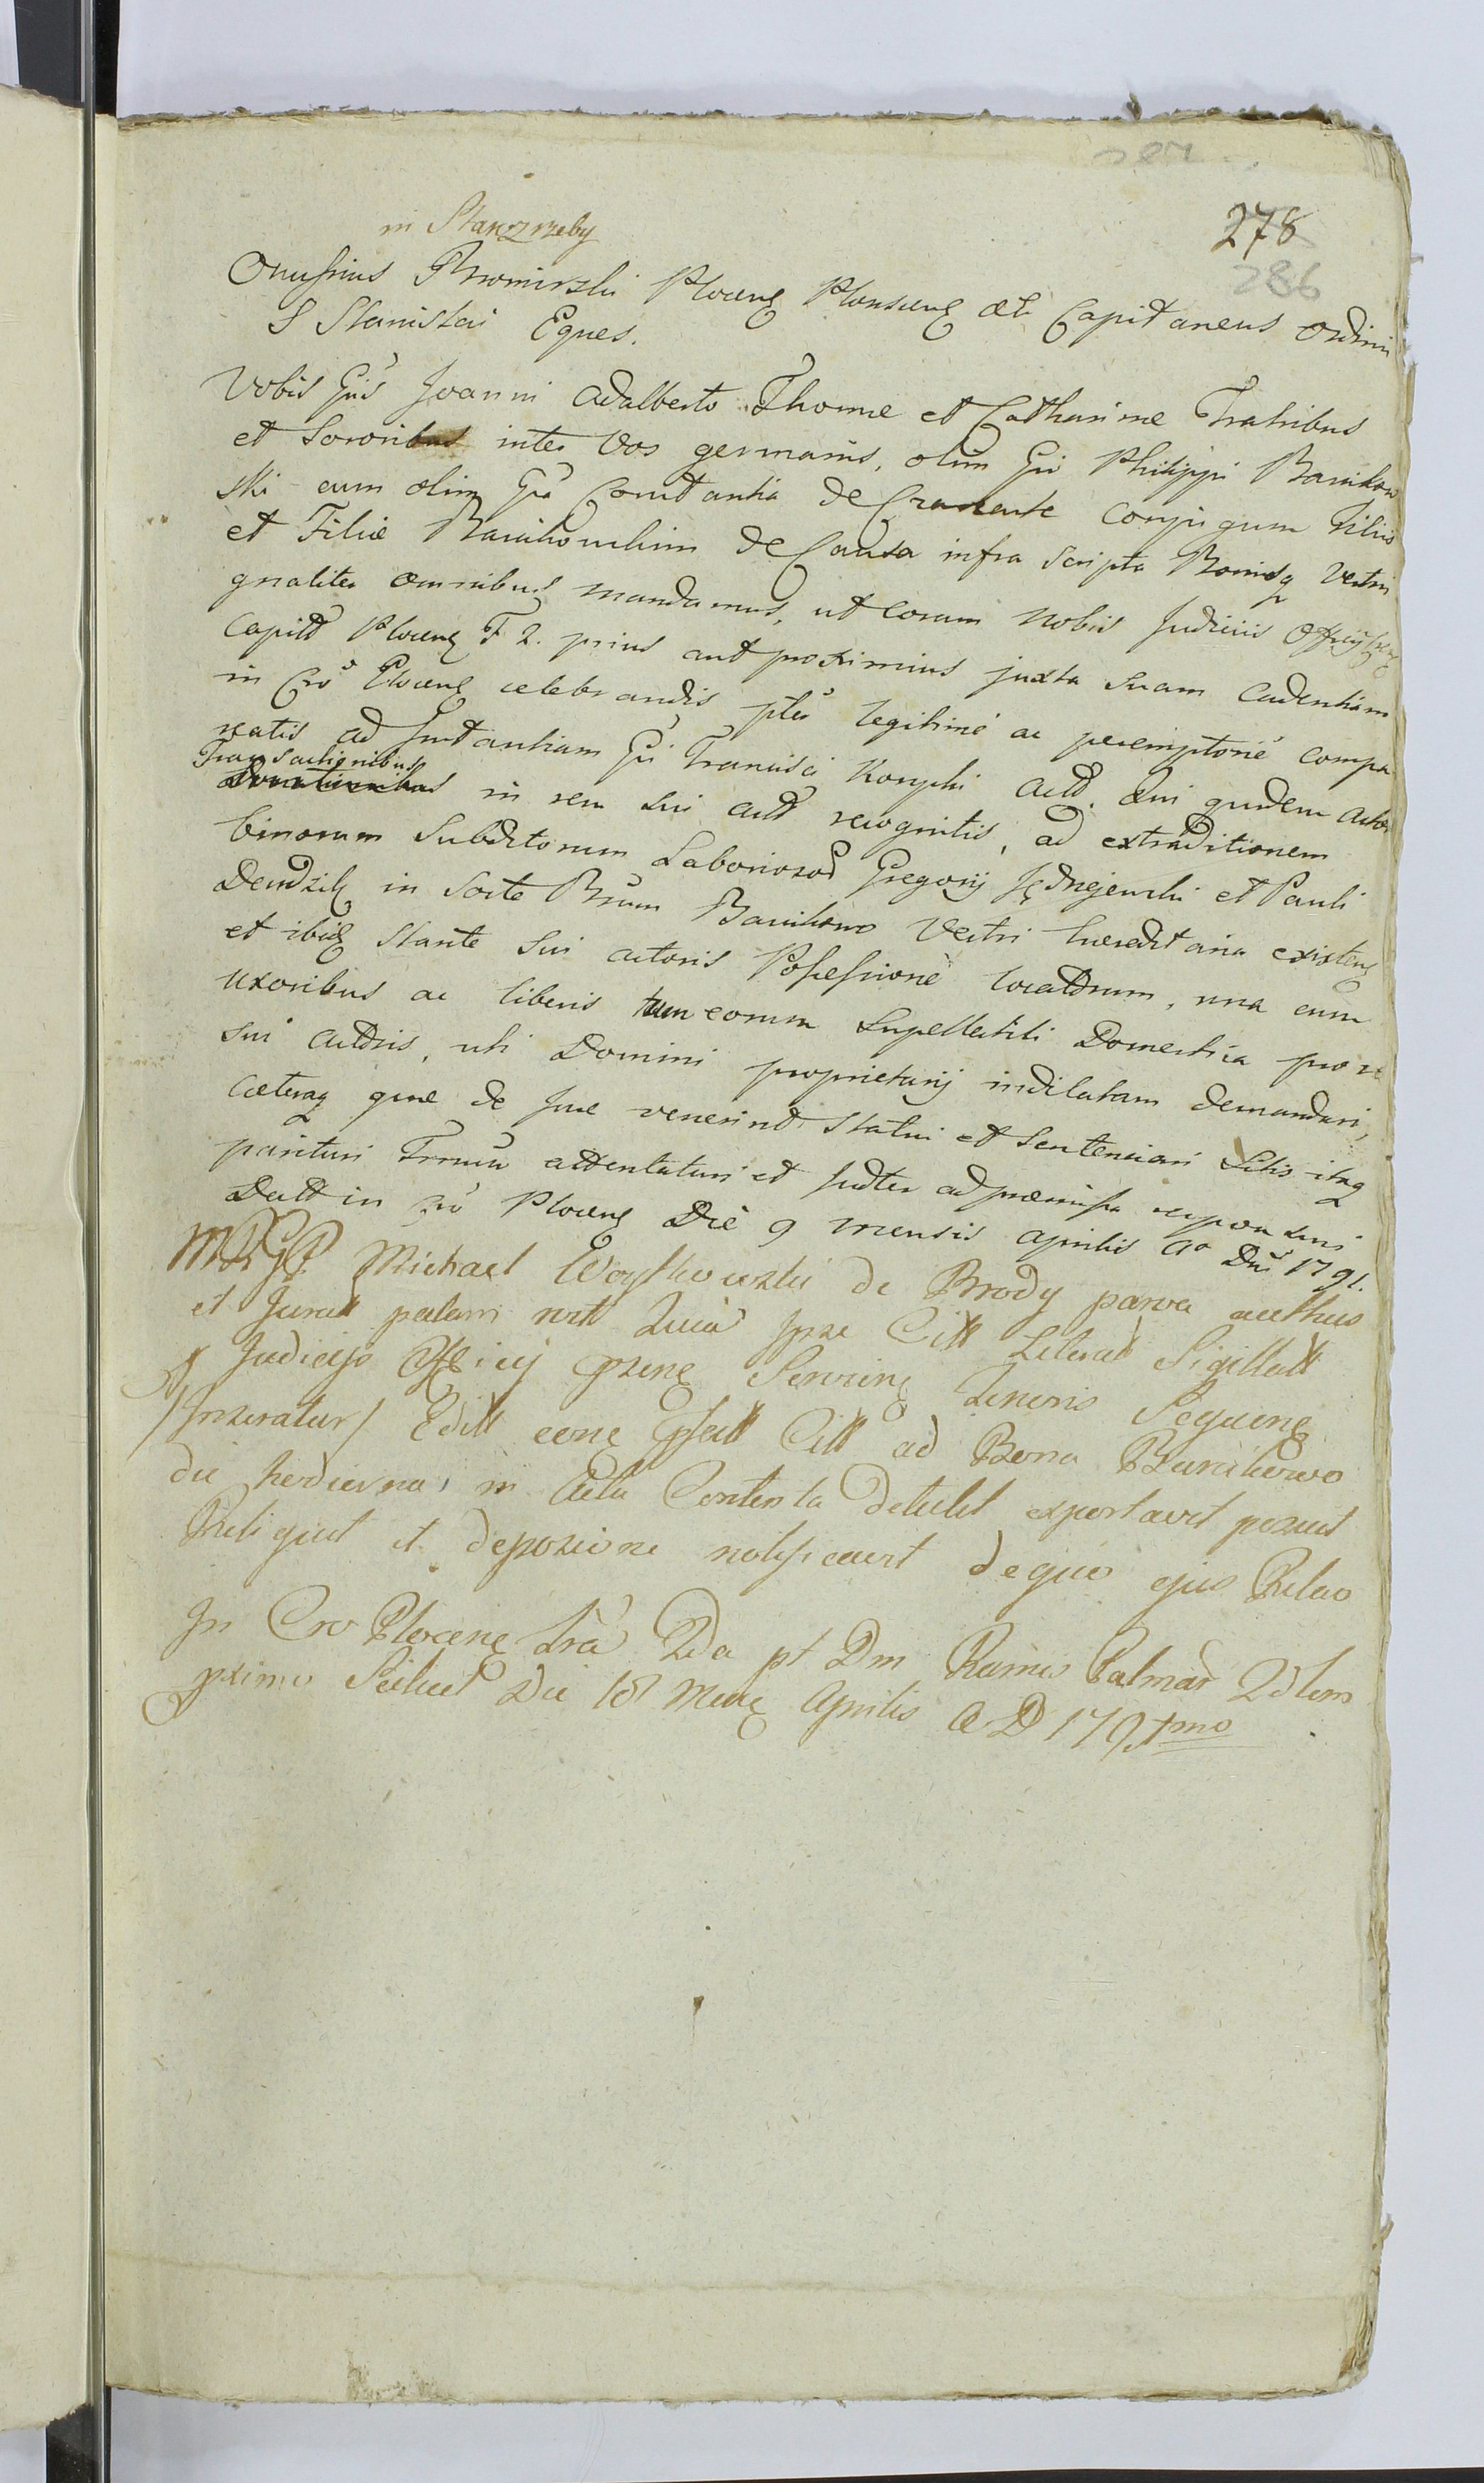 278
286
in Starzreby
Onufrius Bromirski Plocenę Plonscenę etc Capitaneus Ordinis
S Stanislai Eques.
Vobis Gũs Joanni Adalberto Thomæ et Catharinæ Fratribus
et Sororibus inter Vos germanis, olim Gũi Philippi Barcikow
ski cum olim Gũa Constantia de conjugum Filiis
et Filiæ Barcikowskim de Causa infra scripta Bonisq Vestris
gnaliter omnibus mandamus, ut Coram Nobis Judiciis Officij
Capitt Plocenę F 2. prius aut proximius juxta suam Cadentiam
in Crõ Plocenę celebrandis pter legitime ac peremptorie compa
reatis ad Instantiam Gũi Francisci Konycki Actt. Qui quidem Actor
Transactionibus
Donationibus in rem sui actt recognitis, ad extraditionem
binorum Subditorum Laboriosod Gregorij Jędrzejewski et Pauli
Dendzik in Sorte Brum Barcikowo Vestri hæreditaria existenę
et ibidę stante sui actoris Possessione locatorum, una cum
uxoribus ac liberis tum eorum Supellectili Domestica pro re
sui acttris, uti Domini proprietarij indilatam demandari,
Cæteraq quæ de Jure venerint Statui et Sentenciari Sitis itaq
parituri Trnum attentaturi et Judter ad præmissa responsuri
Datt in Crõ Plocenę Die 9 mensis Aprilis Aº Dni 1791.
Michael Woytkowski de Brody parva authus
et Juratt palam rectt Quia Ipse Citt Literas Sigillatt
Judicijs Officij Gzenę Servienę Tenoris Sequenę
/Inseratur/ Editt eone Citt ad Bona Barcikowo
die hodierna, in Actu Contenta detulit exportavit posuit
Reliquit et depositione notificavit de quo ejus Relao
In Cro Plocenę Fra 2da pt Dm Ramis Palmar
pximo Scilicet Die 18 Mense Aprilis A D 1791mo